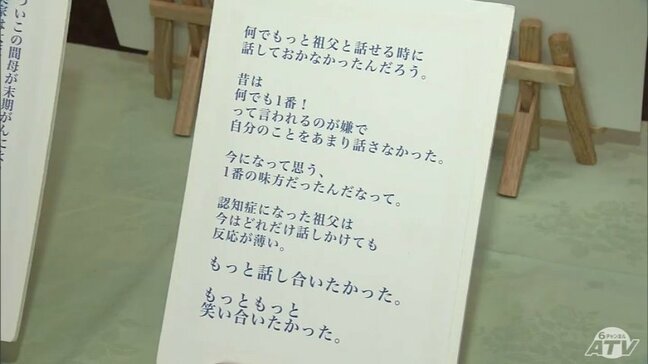 何でもっと祖父と話せる時に
話しておかなかったんだろう。
昔は
何でも1番！
って言われるのが嫌で
自分のことをあまり話さなかった。
今になって思う、
1番の味方だったんだなって。
認知症になった祖父は
今はどれだけ話しかけても
反応が薄い。
もっと話し合いたかった。
もっともっと
笑い合いたかった。
ついこの間母が末期がんに
6チャンネル
ATV